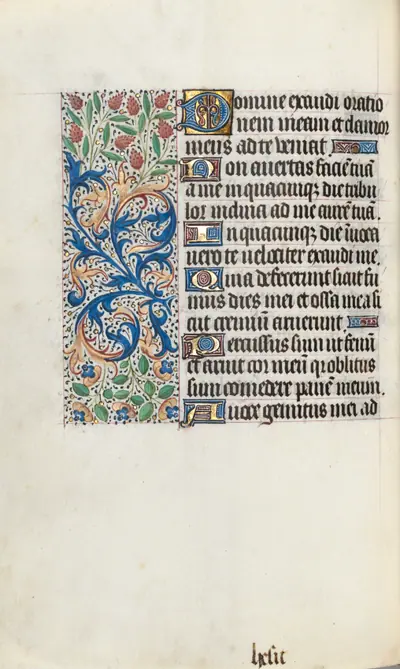 Domine exaudi oratio
nem meam et clamor
meus ad te veniat.
Non avertas faciē tuā
a me in quacūqꝫ die tribu
lor inclina ad me aurē tuā.
In quacūqꝫ die īvoca
vero te velociter exaudi me.
Quia defecerunt sicut fu
mus dies mei et ossa mea si
cut gremiū aruerunt
Percussus sum ut fenū
et aruit cor meū qꝛ oblitus
sum comedere panē meum.
A voce gemitus mei ad
hesit